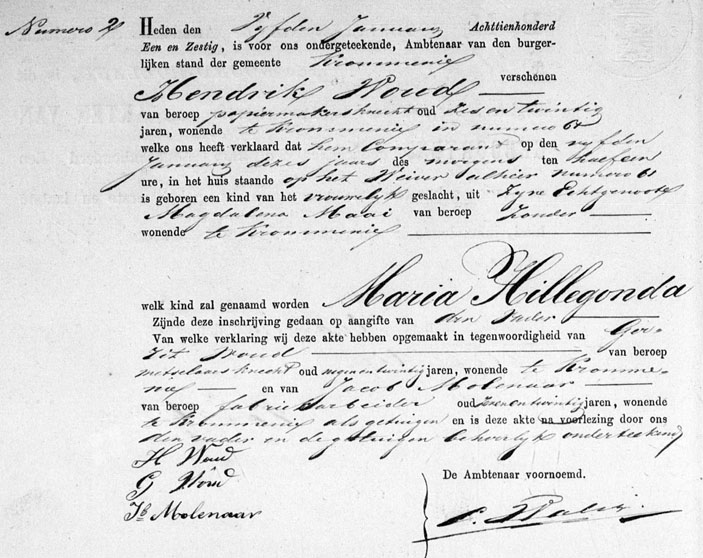 Numero 2
Heden den Vyfden January Achttienhonderd
Een en Zestig, is voor ons ondergeteekende, Ambtenaar van den burger-
lijken stand der gemeente Krommenie
verschenen
Hendrik Woud
van beroep papiermakersknecht oud Zes en twintig
jaren, wonende te Krommenie in numero 61
welke ons heeft verklaard dat hem Comparant op den vyfden
January dezes jaars des morgens ten half een
ure, in het huis staande op het Weiver alhier numero 61
is geboren een kind van het vrouwelyk geslacht, uit Zyne Echtgenoote
Magdalena Maai van beroep Zonder
wonende te Krommenie
welk kind zal genaamd worden Maria Hillegonda
Zijnde deze inschrijving gedaan op aangifte van den Vader
Van welke verklaring wij deze akte hebben opgemaakt in tegenwoordigheid van Ger-
rit Woud van beroep
metselaars knecht oud negen en twintig jaren, wonende te Kromme-
nie en van Jacob Molenaar
van beroep fabriekarbeider oud Zeven en twintig jaren, wonende
te Krommenie als getuigen en is deze akte na voorlezing door ons
den vader en de getuigen behoorlyk onderteekend
H Woud
G Woud
Jb Molenaar
De Ambtenaar voornoemd.